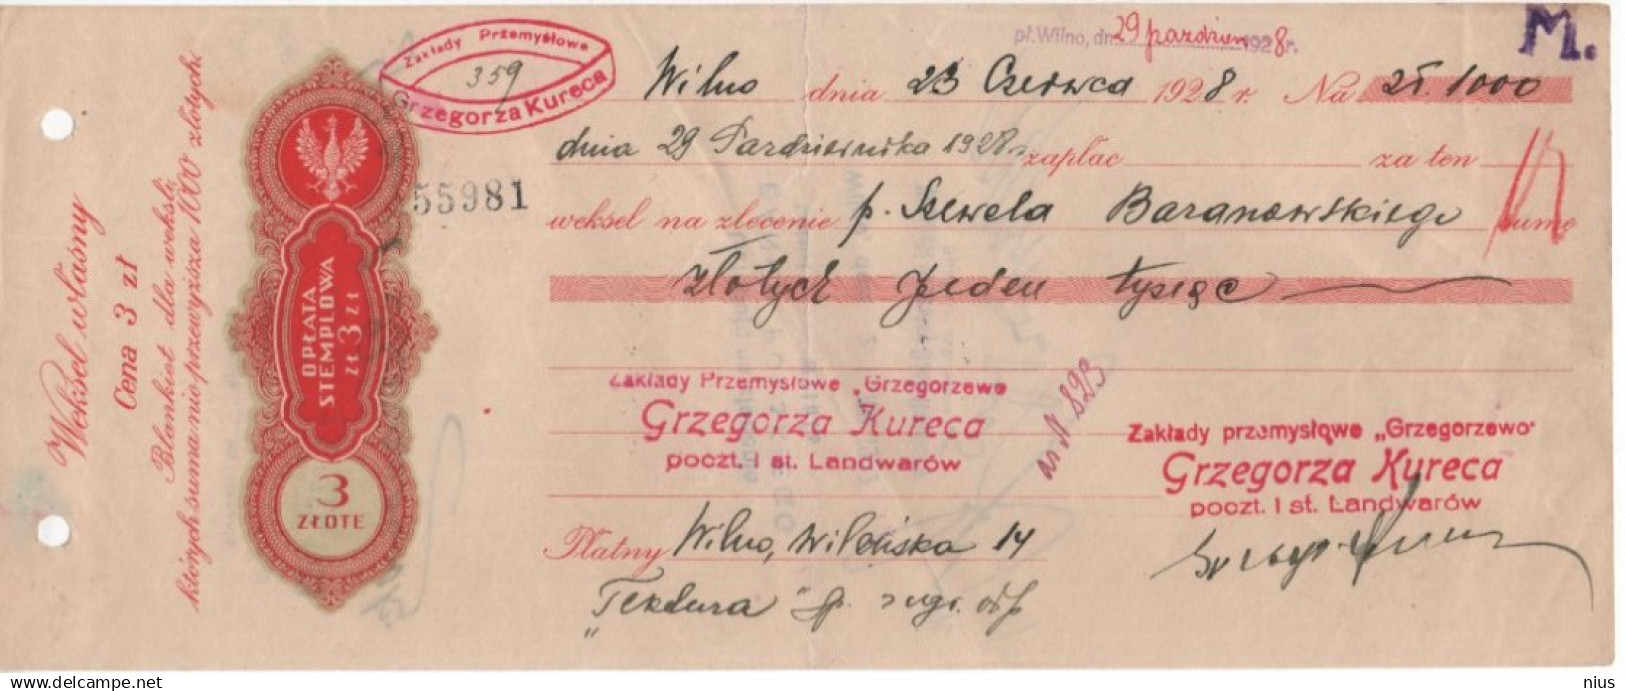 Weksel własny
Cena 3 zł
Blankiet dla weksli,
których suma nie przewyższa 1000 złotych
OPŁATA
STEMPLOWA
ZŁ 3 ZŁ
3
ZŁOTE
Zakłady Przemysłowe
359
Grzegorza Kureca
55981
pł. Wilno, dn. 29 pazdziern 1928 r.
M.
Wilno dnia 23 Czerwca 1928 r. Na zł. 1000
dnia 29 Pazdziernika 1928 r. zapłac za ten
weksel na zlecenie p. Szewela Baranowskiego sumę
złotych jeden tysiąc
Zakłady Przemysłowe „Grzegorzewo
Grzegorza Kureca
poczt. i st. Landwarów
Zakłady przemysłowe „Grzegorzewo"
Grzegorza Kureca
poczt. i st. Landwarów
Płatny Wilno, Wileńska 14
"Tektura" Sp. z ogr. odp
www.delcampe.net
nius